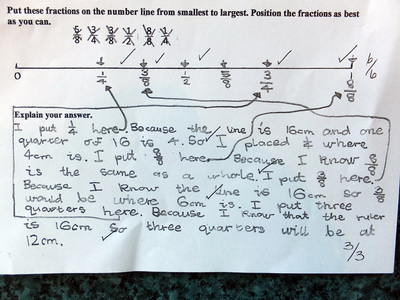 Put these fractions on the number line from smallest to largest. Position the fractions as best
as you can.
5/8 3/4 3/8 1/2 8/8 1/4
0 1/4 3/8 1/2 5/8 3/4 1 8/8
6/6
Explain your answer.
I put 1/4 here. Because the line is 16cm and one
quarter of 16 is 4. So I placed 1/4 where
4cm is. I put 8/8 here Because I know 8/8
is the same as a whole. I put 3/8 here.
Because I know the line is 16cm so 3/8
would be where 6cm is. I put three
quarters here. Because I know that the ruler
is 16cm so three quarters will be at
12cm.
3/3